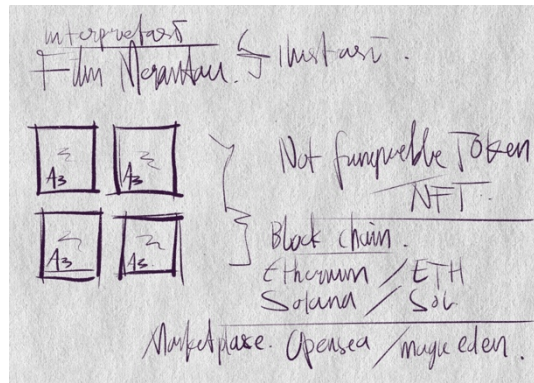 interpretasi
Film Merantau. Ilustrasi.
A3
A3
A3
A3
Not funguebble Token
NFT.
Block chain.
Ethernum / ETH
Solana / Sol
Marketplase. Opensea / magic eden.